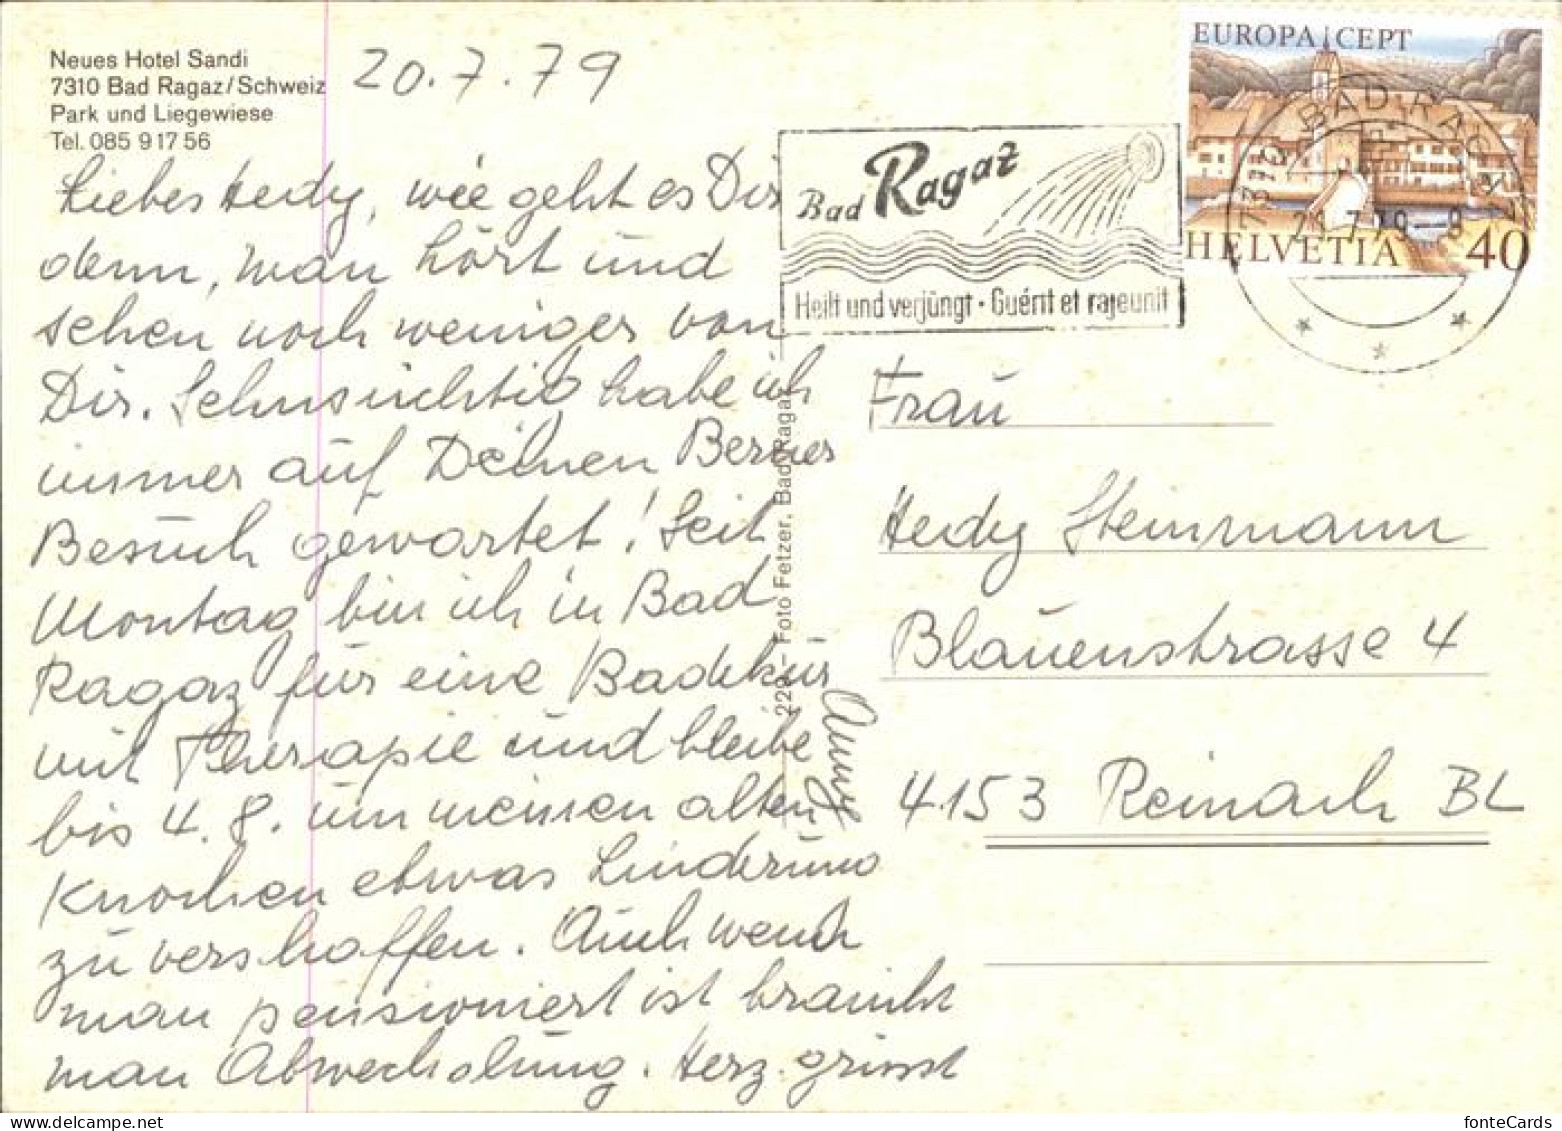 Neues Hotel Sandi
7310 Bad Ragaz/Schweiz
Park und Liegewiese
Tel. 085 9 17 56
20.7.79
Liebes Hedy, wie geht es Dir
denn, man hört und
sehen noch weniger von
Dir. Sehnsüchtig habe ich
immer auf Deinen Berner
Besuch gewartet! Seit
Montag bin ich in Bad
Ragaz für eine Badekur
mit Therapie und bleibe
bis 4.8. um meinen alten
Knochen etwas Linderung
zu vershaffen. Auch wenn
man pensioniert ist braucht
man Abwechslung. Herz. grüsst
Anny
229 - Foto Fetzer, Bad Ragaz
EUROPA CEPT
HELVETIA 40
7310 BAD RAGAZ
Bad Ragaz
Heilt und verjüngt · Guérit et rajeunit
Frau
Hedy Steinmann
Blauenstrasse 4
4153 Reinach BL
fonteCards
www.delcampe.net